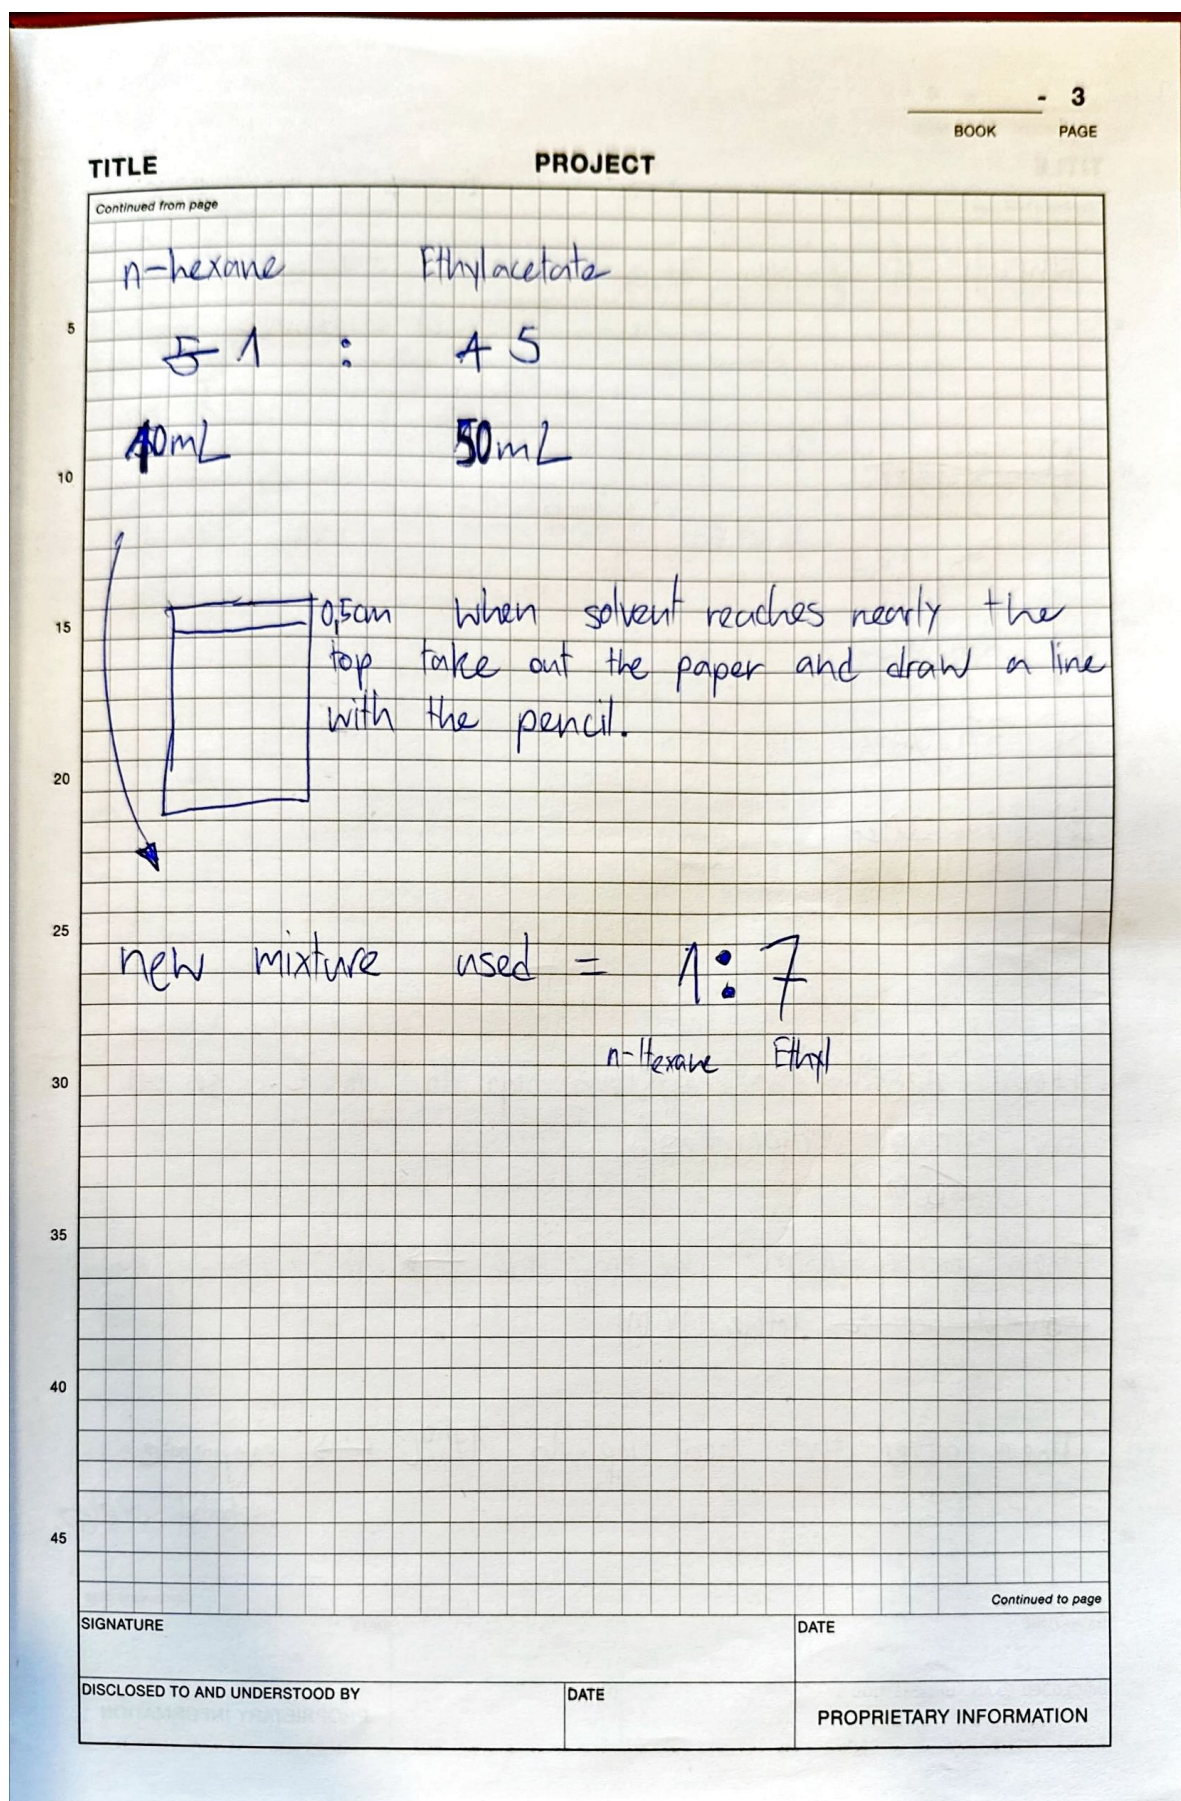 - 3
BOOK PAGE
TITLE PROJECT
Continued from page
n-hexane Ethylacetate
5
5 1 : 1 5
10mL 50mL
10
15
0,5cm When solvent reaches nearly the
top take out the paper and draw a line
with the pencil.
20
25
new mixture used = 1:7
n-Hexane Ethyl
30
35
40
45
Continued to page
SIGNATURE DATE
DISCLOSED TO AND UNDERSTOOD BY DATE
PROPRIETARY INFORMATION